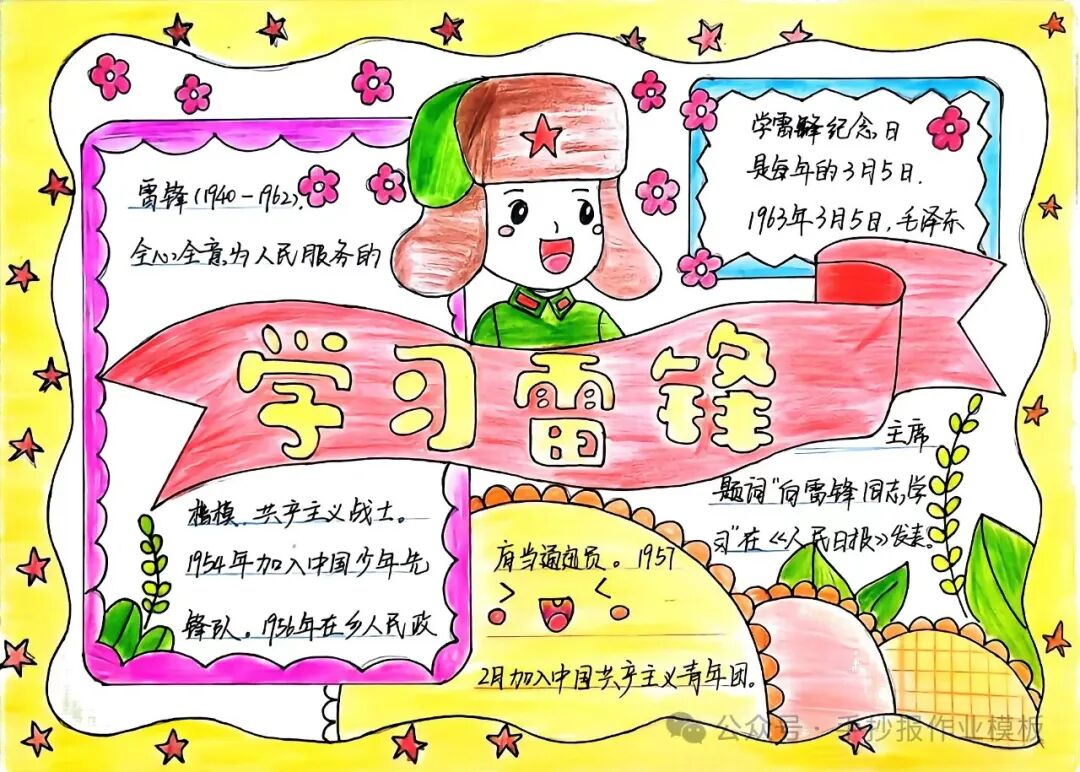 雷锋(1940-1962),
全心全意为人民服务的
学习雷锋
楷模、共产主义战士。
1954年加入中国少年先
锋队。1956年在乡人民政
府当通迅员。1957
2月加入中国共产主义青年团。
学雷锋纪念日
是每年的3月5日.
1963年3月5日,毛泽东
主席
题词“向雷锋同志学
习”在《人民日报》发表。
公众号·手抄报作业模板